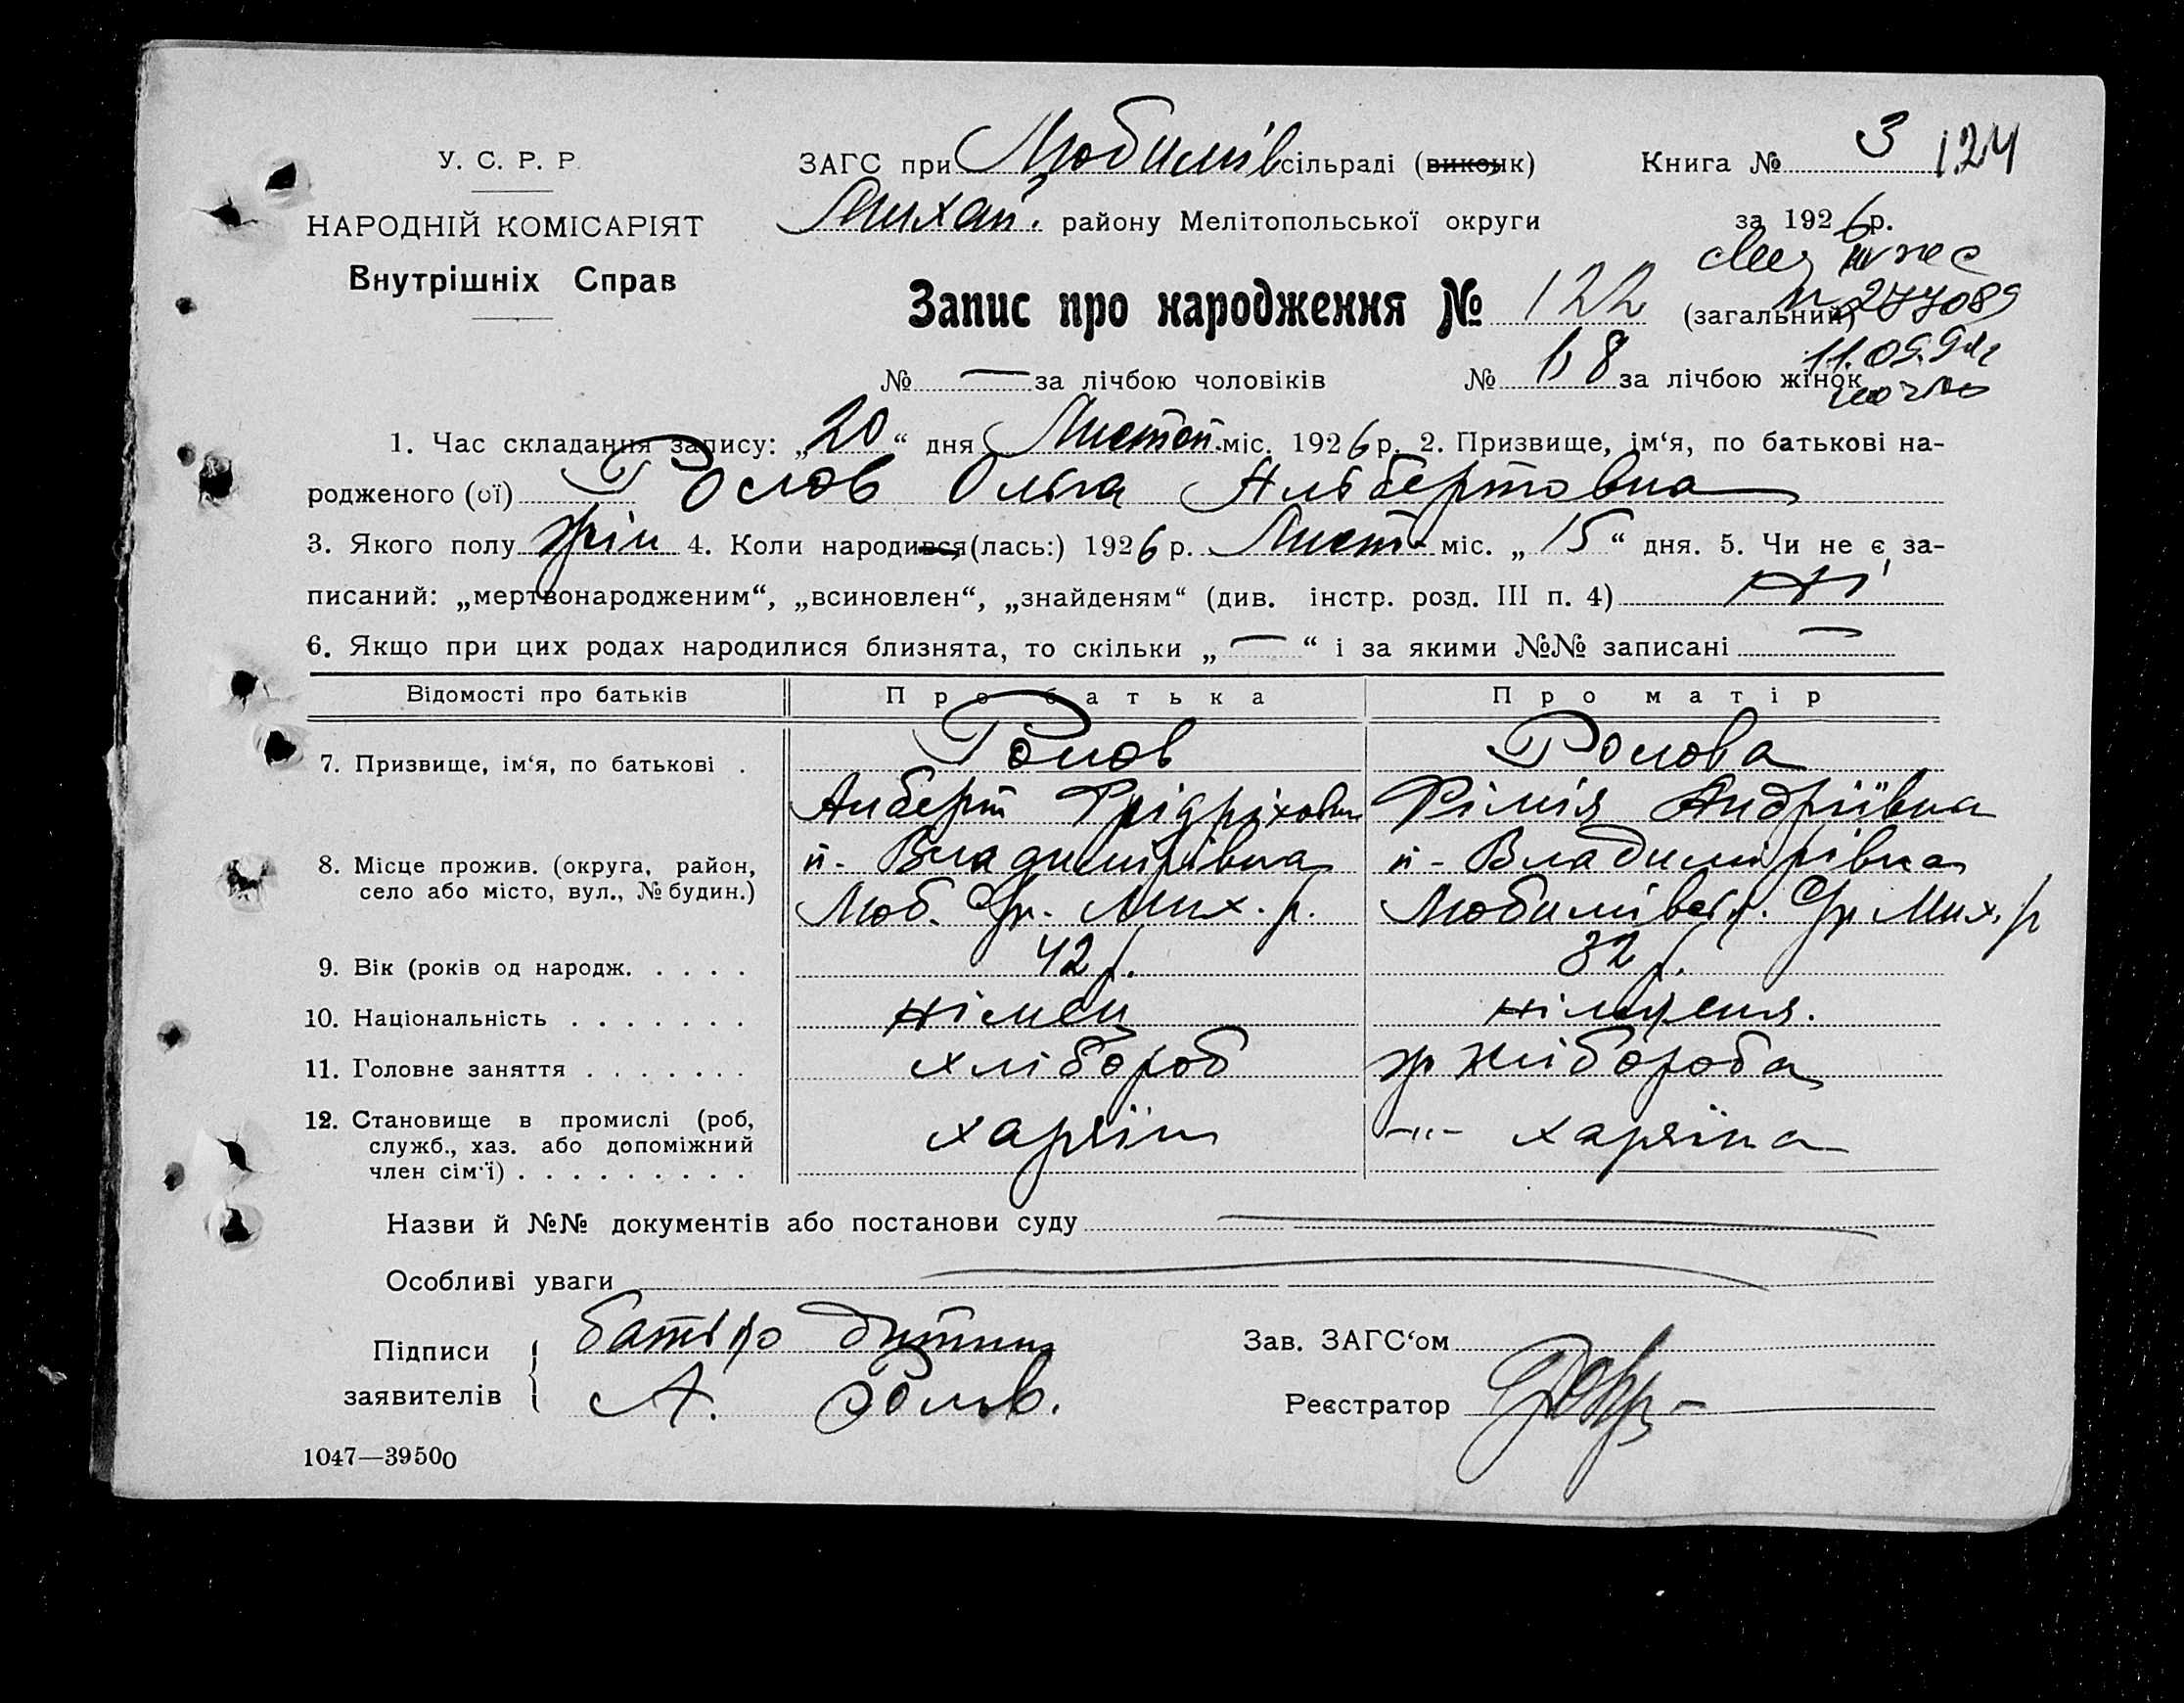 У. С. Р. Р.
ЗАГС при Любимів сільраді (виконк)
Книга № 3 124
НАРОДНІЙ КОМІСАРІЯТ
Михай. району Мелітопольської округи
за 1926 р.
Внутрішніх Справ
Запис про народження № 122 (загальний) 277089
№ — за лічбою чоловіків № 68 за лічбою жінок
1. Час складання запису: „20“ дня Листоп. міс. 1926 р. 2. Призвище, ім‘я, по батькові на-
родженого (ої) Ольга Альбертовна
3. Якого полу жін 4. Коли народився (лась:) 1926 р. Лист. міс. „15“ дня. 5. Чи не є за-
писаний: „мертвонародженим“, „всиновлен“, „знайденям“ (див. інстр. розд. III п. 4) Ні
6. Якщо при цих родах народилися близнята, то скільки „—“ і за якими №№ записані —
Відомості про батьків Про батька Про матір
7. Призвище, ім‘я, по батькові .
Алберт Фрідріхович Андріївна
8. Місце прожив. (округа, район, к. Владимирівка к - Владимирівка
село або місто, вул., № будин.) Люб. Мих. р. Мих. р
9. Вік (років од народж. . . . . 42 р. 32 р.
10. Національність . . . . . . . німец німкеня.
11. Головне заняття . . . . . . . хлібороб хлібороба
12. Становище в промислі (роб,
служб., хаз. або допоміжний хазяїн -"- хазяїна
член сім‘ї) . . . . . . . . .
Назви й №№ документів або постанови суду
Особливі уваги
Підписи батько дитини
Зав. ЗАГС‘ом
заявителів А.
Реєстратор
1047—39500